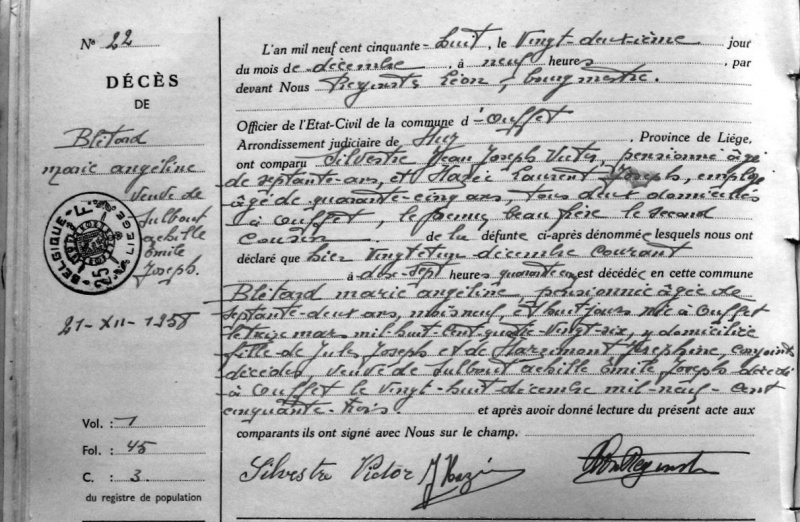 N° 22
DÉCÈS
DE
Blétard
marie angéline
veuve de
Julbout
achille
Émile
Joseph.
BELGIQUE
21-XII-1958
Vol. : 1
Fol. : 45
C. : 3
du registre de population
L'an mil neuf cent cinquante-huit, le vingt-deuxième jour
du mois de décembre, à neuf heures, par
devant Nous Reginster Léon, bourgmestre.
Officier de l'Etat-Civil de la commune d'Ouffet
Arrondissement judiciaire de Huy, Province de Liége,
ont comparu Silvestre Jean Joseph Victor, pensionné âgé
de septante-ans, et Hazée Laurent Joseph, employé
âgé de quarante-cinq ans, tous deux domiciliés
à Ouffet, le premier beau frère le second
cousin de la défunte ci-après dénommée lesquels nous ont
déclaré que hier vingt et un décembre courant
à dix-sept heures quarante cinq est décédée en cette commune
Blétard marie angéline, pensionnée âgée de
septante-deux ans, mois neuf, et huit jours née à Ouffet
le treize mars mil huit cent quatre-vingt-six, y domiciliée
fille de Jules Joseph et de Joséphine, conjoints
décédés, veuve de Julbout achille Émile Joseph décédé
à Ouffet le vingt-huit décembre mil-neuf-cent
cinquante-trois et après avoir donné lecture du présent acte aux
comparants ils ont signé avec Nous sur le champ.
Silvestre Victor J Hazée